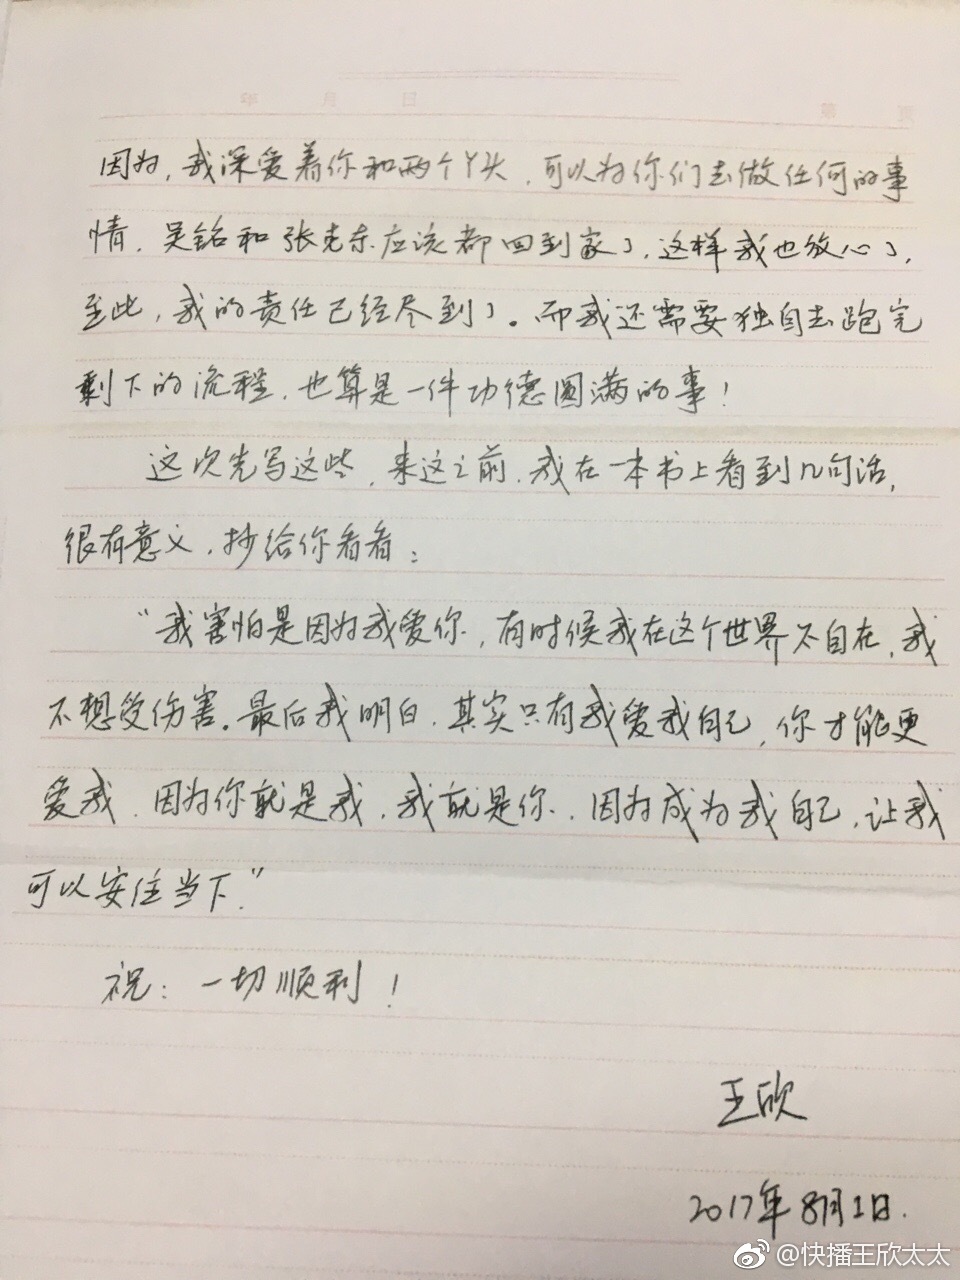 年 月 日 第 页
因为,我深爱着你和两个丫头,可以为你们去做任何的事
情,吴铭和张克东应该都回到家了,这样我也放心了,
至此,我的责任已经尽到了。而我还需要独自去跑完
剩下的流程,也算是一件功德圆满的事!
这次先写这些,来这之前,我在一本书上看到几句话,
很有意义,抄给你看看:
“我害怕是因为我爱你,有时候我在这个世界不自在,我
不想受伤害。最后我明白,其实只有我爱我自己,你才能更
爱我,因为你就是我,我就是你,因为成为我自己,让我
可以安住当下.”
祝:一切顺利!
王欣
2017年8月1日.
@快播王欣太太